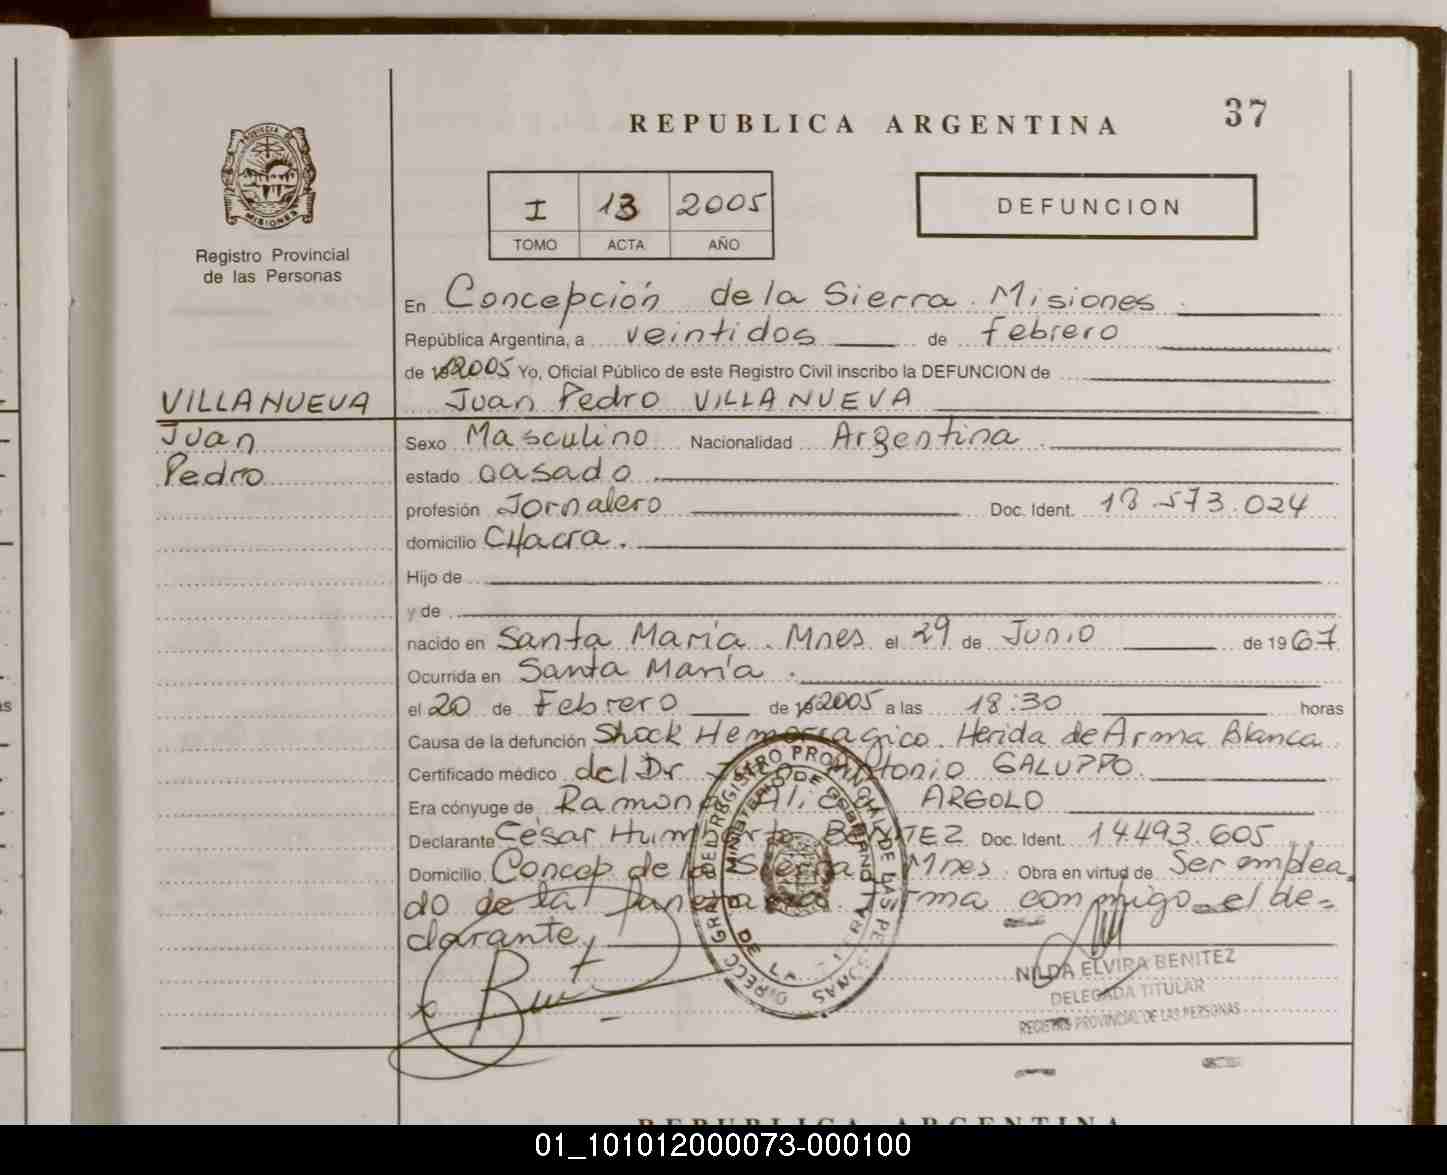 37
REPUBLICA ARGENTINA
PROVINCIA DE
MISIONES
Registro Provincial
de las Personas
I 13 2005
TOMO ACTA AÑO
DEFUNCION
En Concepción de la Sierra. Misiones
República Argentina, a veintidos de febrero
de 2005 Yo, Oficial Público de este Registro Civil inscribo la DEFUNCION de
VILLANUEVA Juan Pedro VILLANUEVA
Juan Sexo Masculino Nacionalidad Argentina
Pedro estado casado
profesión Jornalero Doc. Ident. 18.573.024
domicilio CHacra.
Hijo de
y de
nacido en Santa María. Mnes el 29 de Junio de 1967
Ocurrida en Santa María.
el 20 de Febrero de 2005 a las 18:30 horas
Causa de la defunción Shock Hemorragico. Herida de Arma Blanca
Certificado médico del Dr Antonio GALUPPO.
Era cónyuge de Ramona Alicia ARGOLO
Declarante César Humberto BENITEZ Doc. Ident. 14.493.605
Domicilio Concep de la Sierra Mnes Obra en virtud de Ser emplea
do de la funeraria. Firma conmigo el de=
clarante,
DIRECC GRAL DEL REGISTRO PROVINCIAL DE LAS PERSONAS
MINISTERIO DE GOBIERNO
NILDA ELVIRA BENITEZ
DELEGADA TITULAR
REGISTRO PROVINCIAL DE LAS PERSONAS
REPUBLICA ARGENTINA
01_101012000073-000100